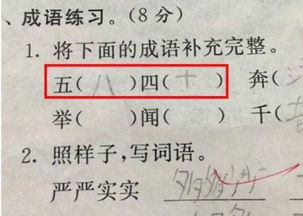 、成语练习。（8分）
1. 将下面的成语补充完整。
五（八）四（十） 奔（
举（ ）闻（ ） 千（
2. 照样子，写词语。
严严实实